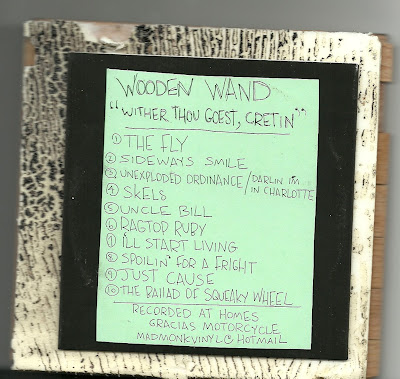 WOODEN WAND
"WITHER THOU GOEST, CRETIN"
① THE FLY
② SIDEWAYS SMILE
③ UNEXPLODED ORDINANCE / DARLIN IM IN CHARLOTTE
④ SKELS
⑤ UNCLE BILL
⑥ RAGTOP RUBY
⑦ I'LL START LIVING
⑧ SPOILIN' FOR A FRIGHT
⑨ JUST CAUSE
⑩ THE BALLAD OF SQUEAKY WHEEL
RECORDED AT HOMES
GRACIAS MOTORCYCLE
MADMONKVINYL@HOTMAIL